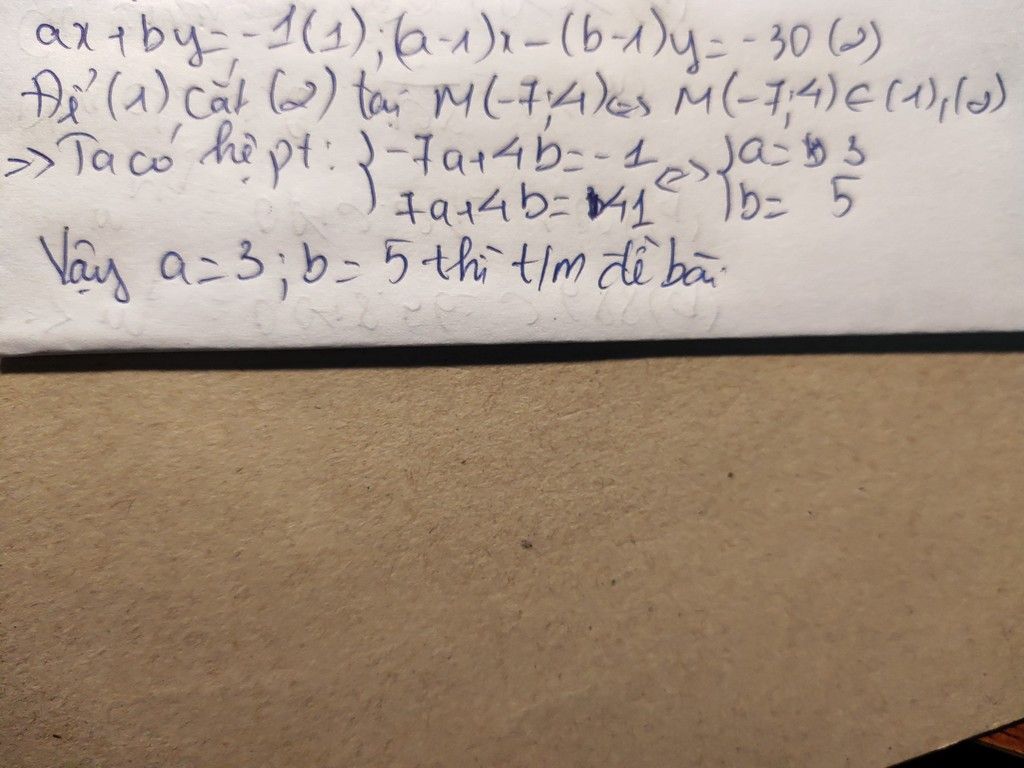 ax+by=-1(1);(a-1)x-(b-1)y=-30(2)
Để (1) cắt (2) tại M(-7;4)<=> M(-7;4)∈(1),(2)
=> Ta có hệ pt: {-7a+4b=-1 <=> {a= 3
7a+4b= 41 b= 5
Vậy a=3;b=5 thì t/m đề bài